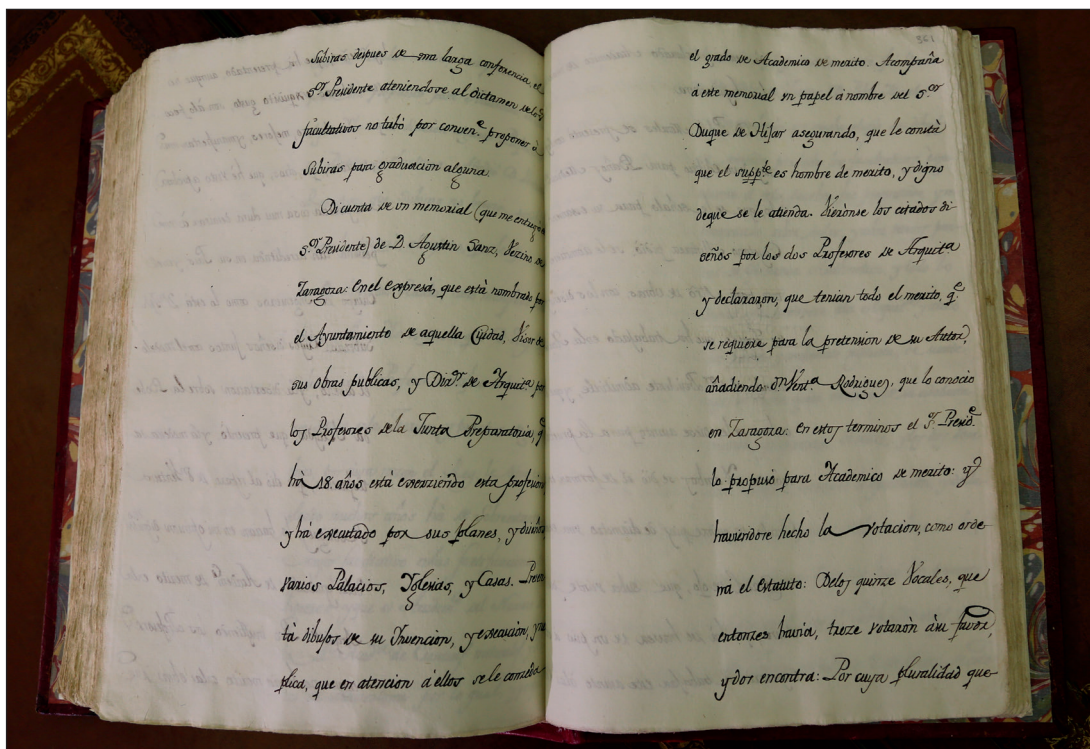 Subiras despues de una larga conferencia, el
S.or Presidente ateniendose al dictamen delos
facultativos no tubó por conven.e proponer à
Subiras para graduacion alguna.
Di cuenta de vn memorial (que me entregó
S.or Presidente) de D. Agustin Sanz, Vezino de
Zaragoza: Enel expresa, que està nombrado por
el Ayuntamiento de aquella Ciudad, Visor de
sus obras publicas, y Dir.or de Arquit.a por
los Profesores dela Junta Preparatoria; q
hà 18. años està exerziendo esta profesion
y há executado por sus planes, y diseños
varios Palacios, Yglesias, y Casas. Presen
tà dibujos de su Invencion, y execucion, y su
plica, que en atencion à ellos se le conzeda
321
el grado de Academico de merito. Acompaña
à este memorial vn papel à nombre del S.or
Duque de Hijar asegurando, que le constà
que el supp.te es hombre de merito, y digno
deque se le atienda. Vieronse los citados di
seños por los dos Profesores de Arquit.a
y declararon, que tenian todo el merito, q.e
se requiere para la pretension de su Autor,
añadiendo D.n Vent.a Rodriguez, que lo conocio
en Zaragoza. En estos terminos el S.r Presid.e
lo propusó para Academico de merito: y
haviendose hecho la votacion, como orde
na el Estatuto: Delos quinze Vocales, que
entonzes havia, treze votaròn à su favor,
y dos encontra: Por cuya pluralidad que